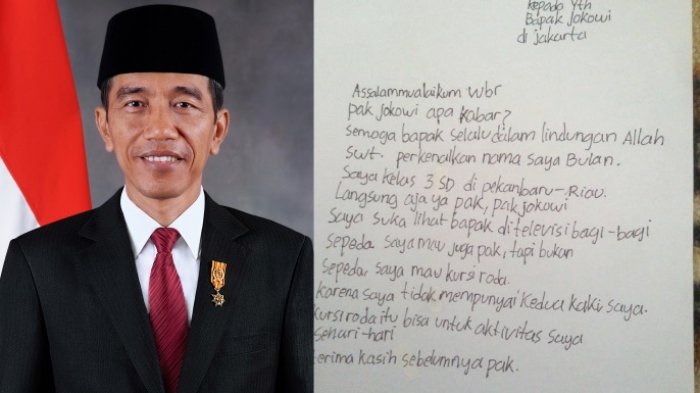 kepada Yth
Bapak Jokowi
di jakarta
Assalammualaikum wbr
pak jokowi apa kabar?
Semoga bapak selalu dalam lindungan Allah
swt. perkenalkan nama saya Bulan.
Saya kelas 3 SD di pekanbaru-Riau.
Langsung aja ya pak, pak jokowi
Saya suka lihat bapak ditelevisi bagi-bagi
sepeda saya mau juga pak, tapi bukan
Sepeda, saya mau kursi roda.
karena saya tidak mempunyai kedua kaki saya.
kursi roda itu bisa untuk aktivitas saya
sehari-hari
erima kasih sebelumnya pak.